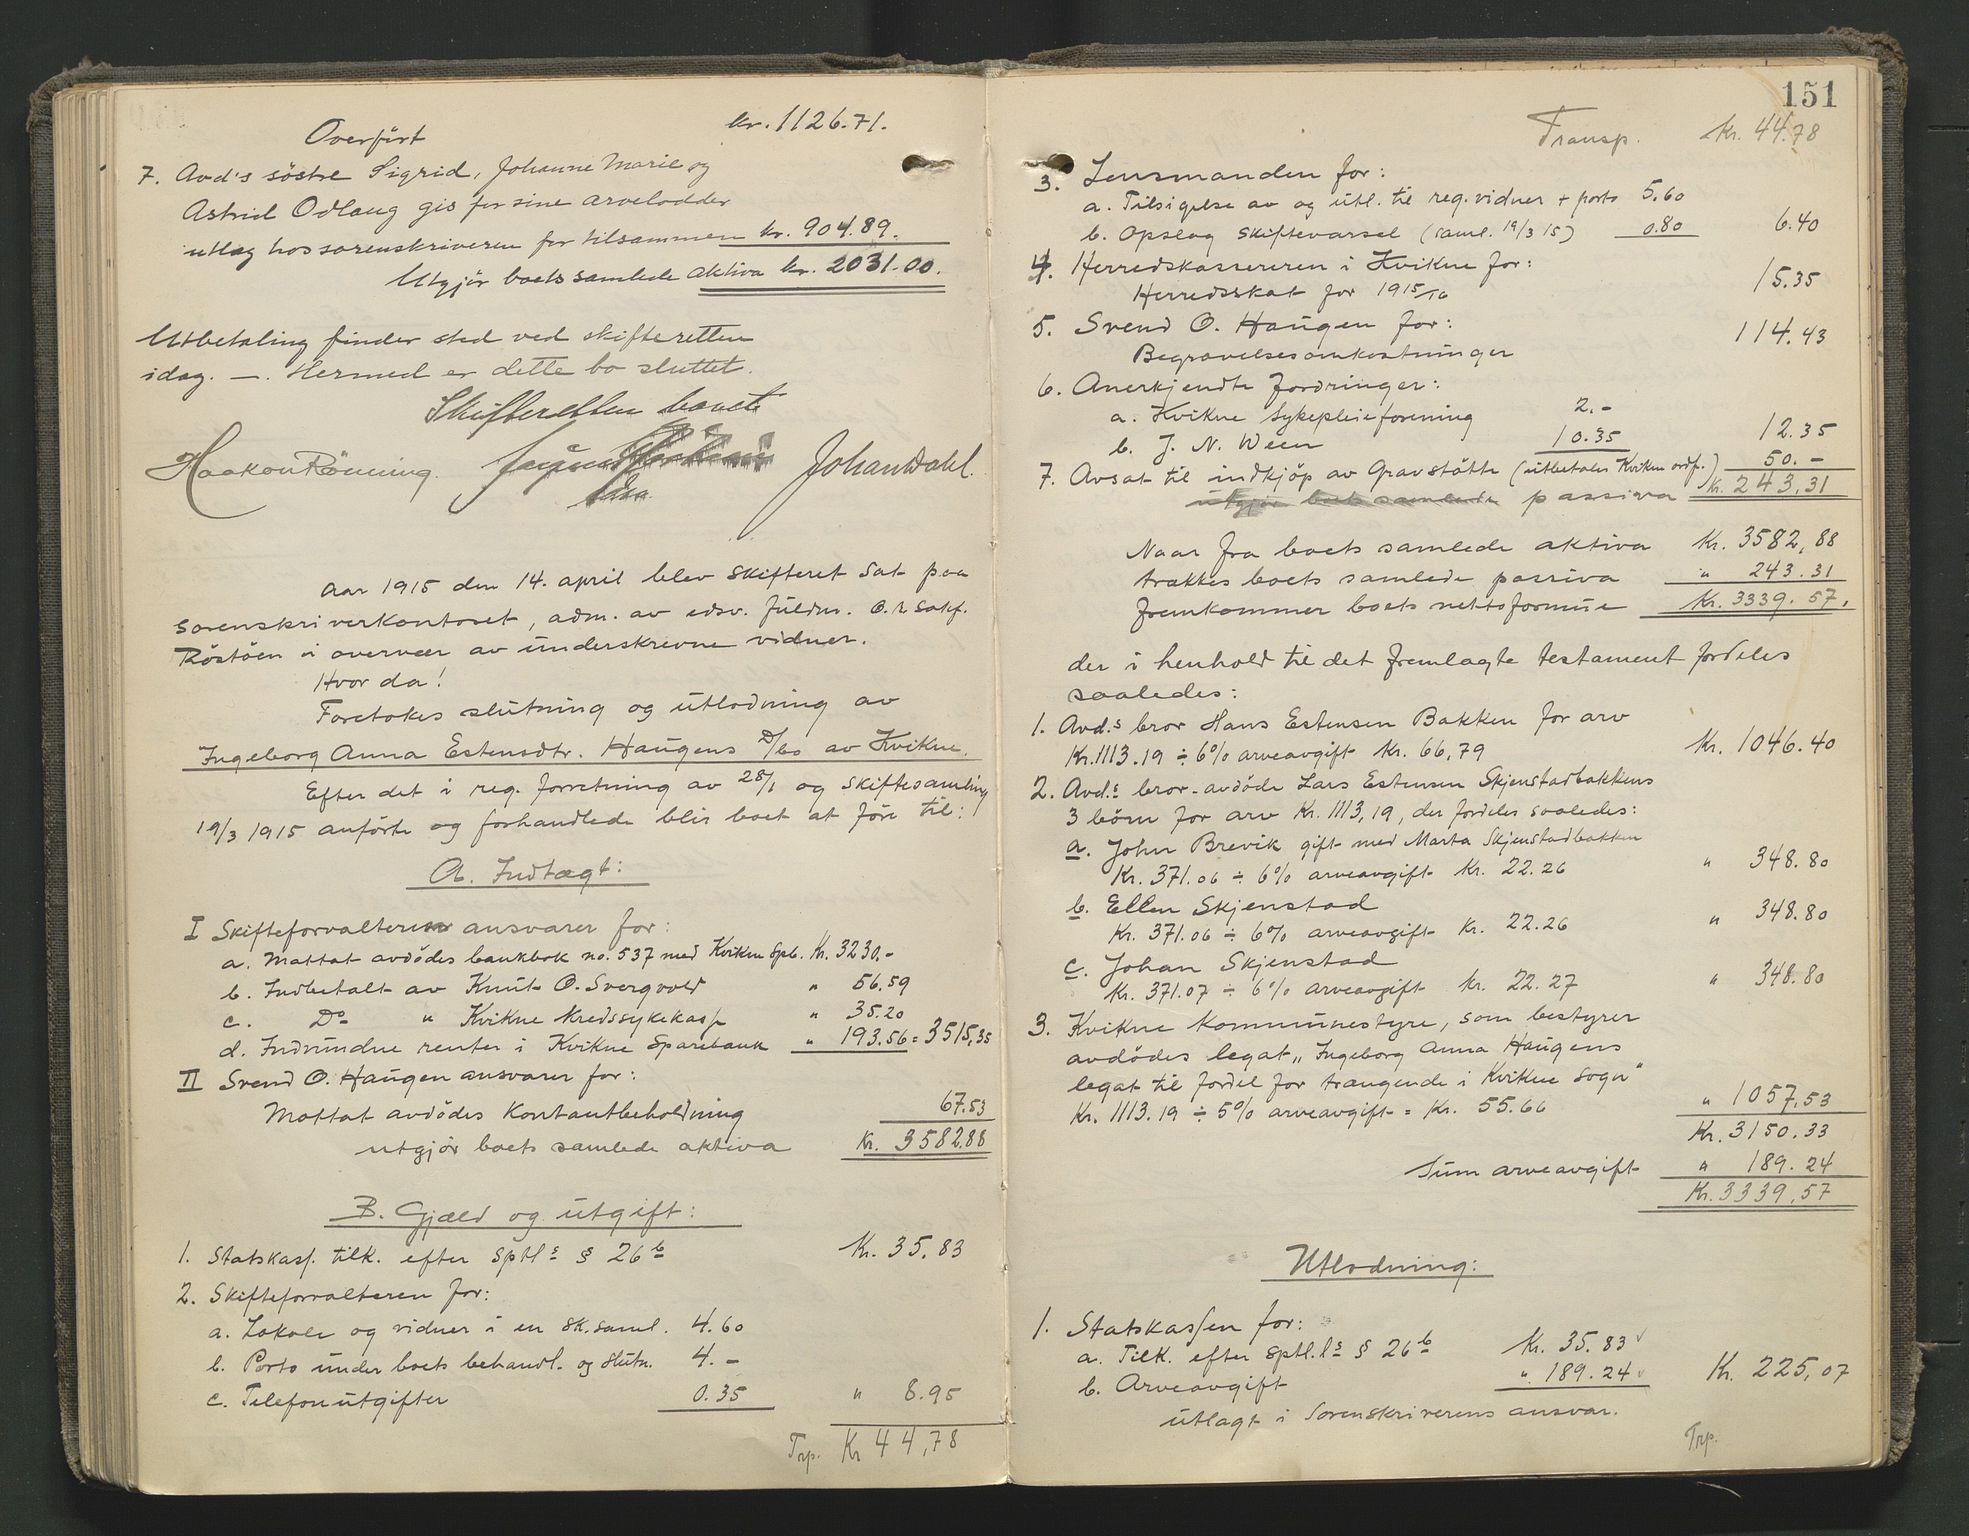 Overført kr. 1126.71.
7. Avd's søstre Sigrid, Johanne Marie og
Astrid Odlaug gis for sine arvelodder
utlæg hos sorenskriveren for tilsammen kr. 904.89.
Utgjør boets samlede aktiva kr. 2031.00.
Utbetaling finder sted ved skifteretten
idag. —. Hermed er dette bo sluttet.
Skifteretten hævet
Haakon Rönning. Johan Dahl.
Aar 1915 den 14. april blev skifteret sat paa
sorenskriverkontoret, adm. av edsv. fuldm. O.r.sakf.
Röstöen i overvær av underskrevne vidner.
Hvor da!
Foretokes slutning og utlodning av
Ingeborg Anna Estensdtr. Haugens D/bo av Kvikne.
Efter det i reg. forretning av 28/1 og skiftesamling
19/3 1915 anførte og forhandlede blir boet at føre til:
A. Indtægt:
I Skifteforvalteren ansvarer for:
a. Mottat avdødes bankbok no. 537 med Kvikne Spb. Kr. 3230.-
b. Indbetalt av Knut O. Svergvold " 56.59
c. Do " Kvikne kredssykekasse " 35.20
d. Indvundne renter i Kvikne Sparebank " 193.56 = 3515,35
II Svend O. Haugen ansvarer for:
Mottat avdødes Kontantbeholdning 67.53
utgjør boets samlede aktiva Kr. 3582.88
B. Gjæld og utgift:
1. Statskass. tilk. efter sptl s § 26 b Kr. 35.83
2. Skifteforvalteren for:
a. Lokale og vidner i en sk.saml. 4.60
b. Porto under boets behandl. og slutn. 4.-
c. Telefonutgifter 0.35 " 8.95
Trp. Kr 44,78
151
Transp. Kr. 44.78
3. Lensmanden for:
a. Tilsigelse av og utl. til reg.vidner + porto 5.60
b. Opslag skiftevarsel (saml. 19/3 15) 0.80 6.40
4. Herredskassereren i Kvikne for:
Herredsskat for 1915/16 15.35
5. Svend O. Haugen for:
Begravelsesomkostninger 114.43
6. Anerkjendte fordringer:
a. Kvikne sykepleieforening 2.-
b. J. N. Ween 10.35 12.35
7. Avsat til indkjøp av Gravstøtte (utbetales Kvikne ordf.) 50.-
utgjør boets samlede passiva Kr. 243,31
Naar fra boets samlede aktiva Kr. 3582,88
trækkes boets samlede passiva " 243.31
fremkommer boets nettoformue Kr. 3339.57.
der i henhold til det fremlagte testament fordeles
saaledes:
1. Avd.s bror Hans Estensen Bakken for arv
Kr. 1113.19 ÷ 6% arveavgift Kr. 66,79 Kr. 1046.40
2. Avd.s bror - avdøde Lars Estensen Skjenstadbakkens
3 börn for arv Kr. 1113,19, der fordeles saaledes:
a. John Brevik gift med Marta Skjenstadbakken
Kr. 371.06 ÷ 6% arveavgift Kr. 22.26 " 348.80
b. Ellen Skjenstad
Kr. 371.06 ÷ 6% arveavgift Kr. 22.26 " 348.80
c. Johan Skjenstad
Kr. 371.07 ÷ 6% arveavgift Kr. 22.27 " 348.80
3. Kvikne Kommunestyre, som bestyrer
avdødes legat „Ingeborg Anna Haugens
legat til fordel for trængende i Kvikne sogn"
Kr. 1113.19 ÷ 5% arveavgift = Kr. 55.66 " 1057,53
Kr. 3150.33
Sum arveavgift " 189.24
Kr. 3339,57
Utlodning:
1. Statskassen for:
a. Tilk. efter sptl.l s § 26 b Kr. 35.83
b. Arveavgift " 189.24 Kr. 225,07
utlagt i Sorenskriverens ansvar.
Trp.